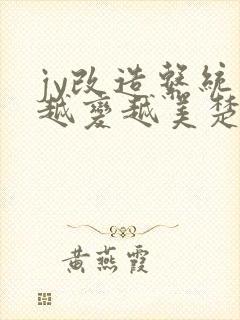 jy改造系統
越變越美楚
黄燕霞